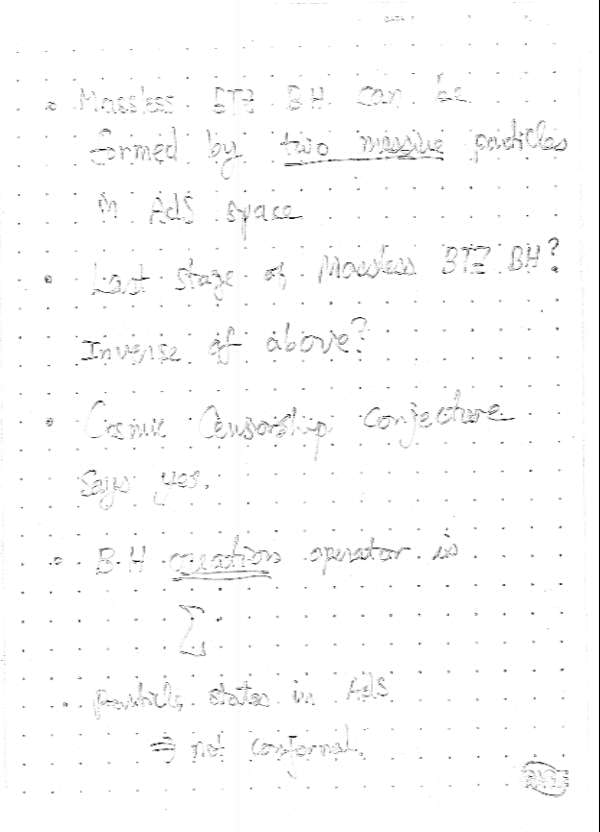 • Massless BTZ BH can be
formed by two massive particles
in AdS space
• Last stage of Massless BTZ BH?
Inverse of above?
• Cosmic Censorship conjecture
says yes.
• B.H creation operator is
Σ
• particle states in AdS
⇒ not conformal.